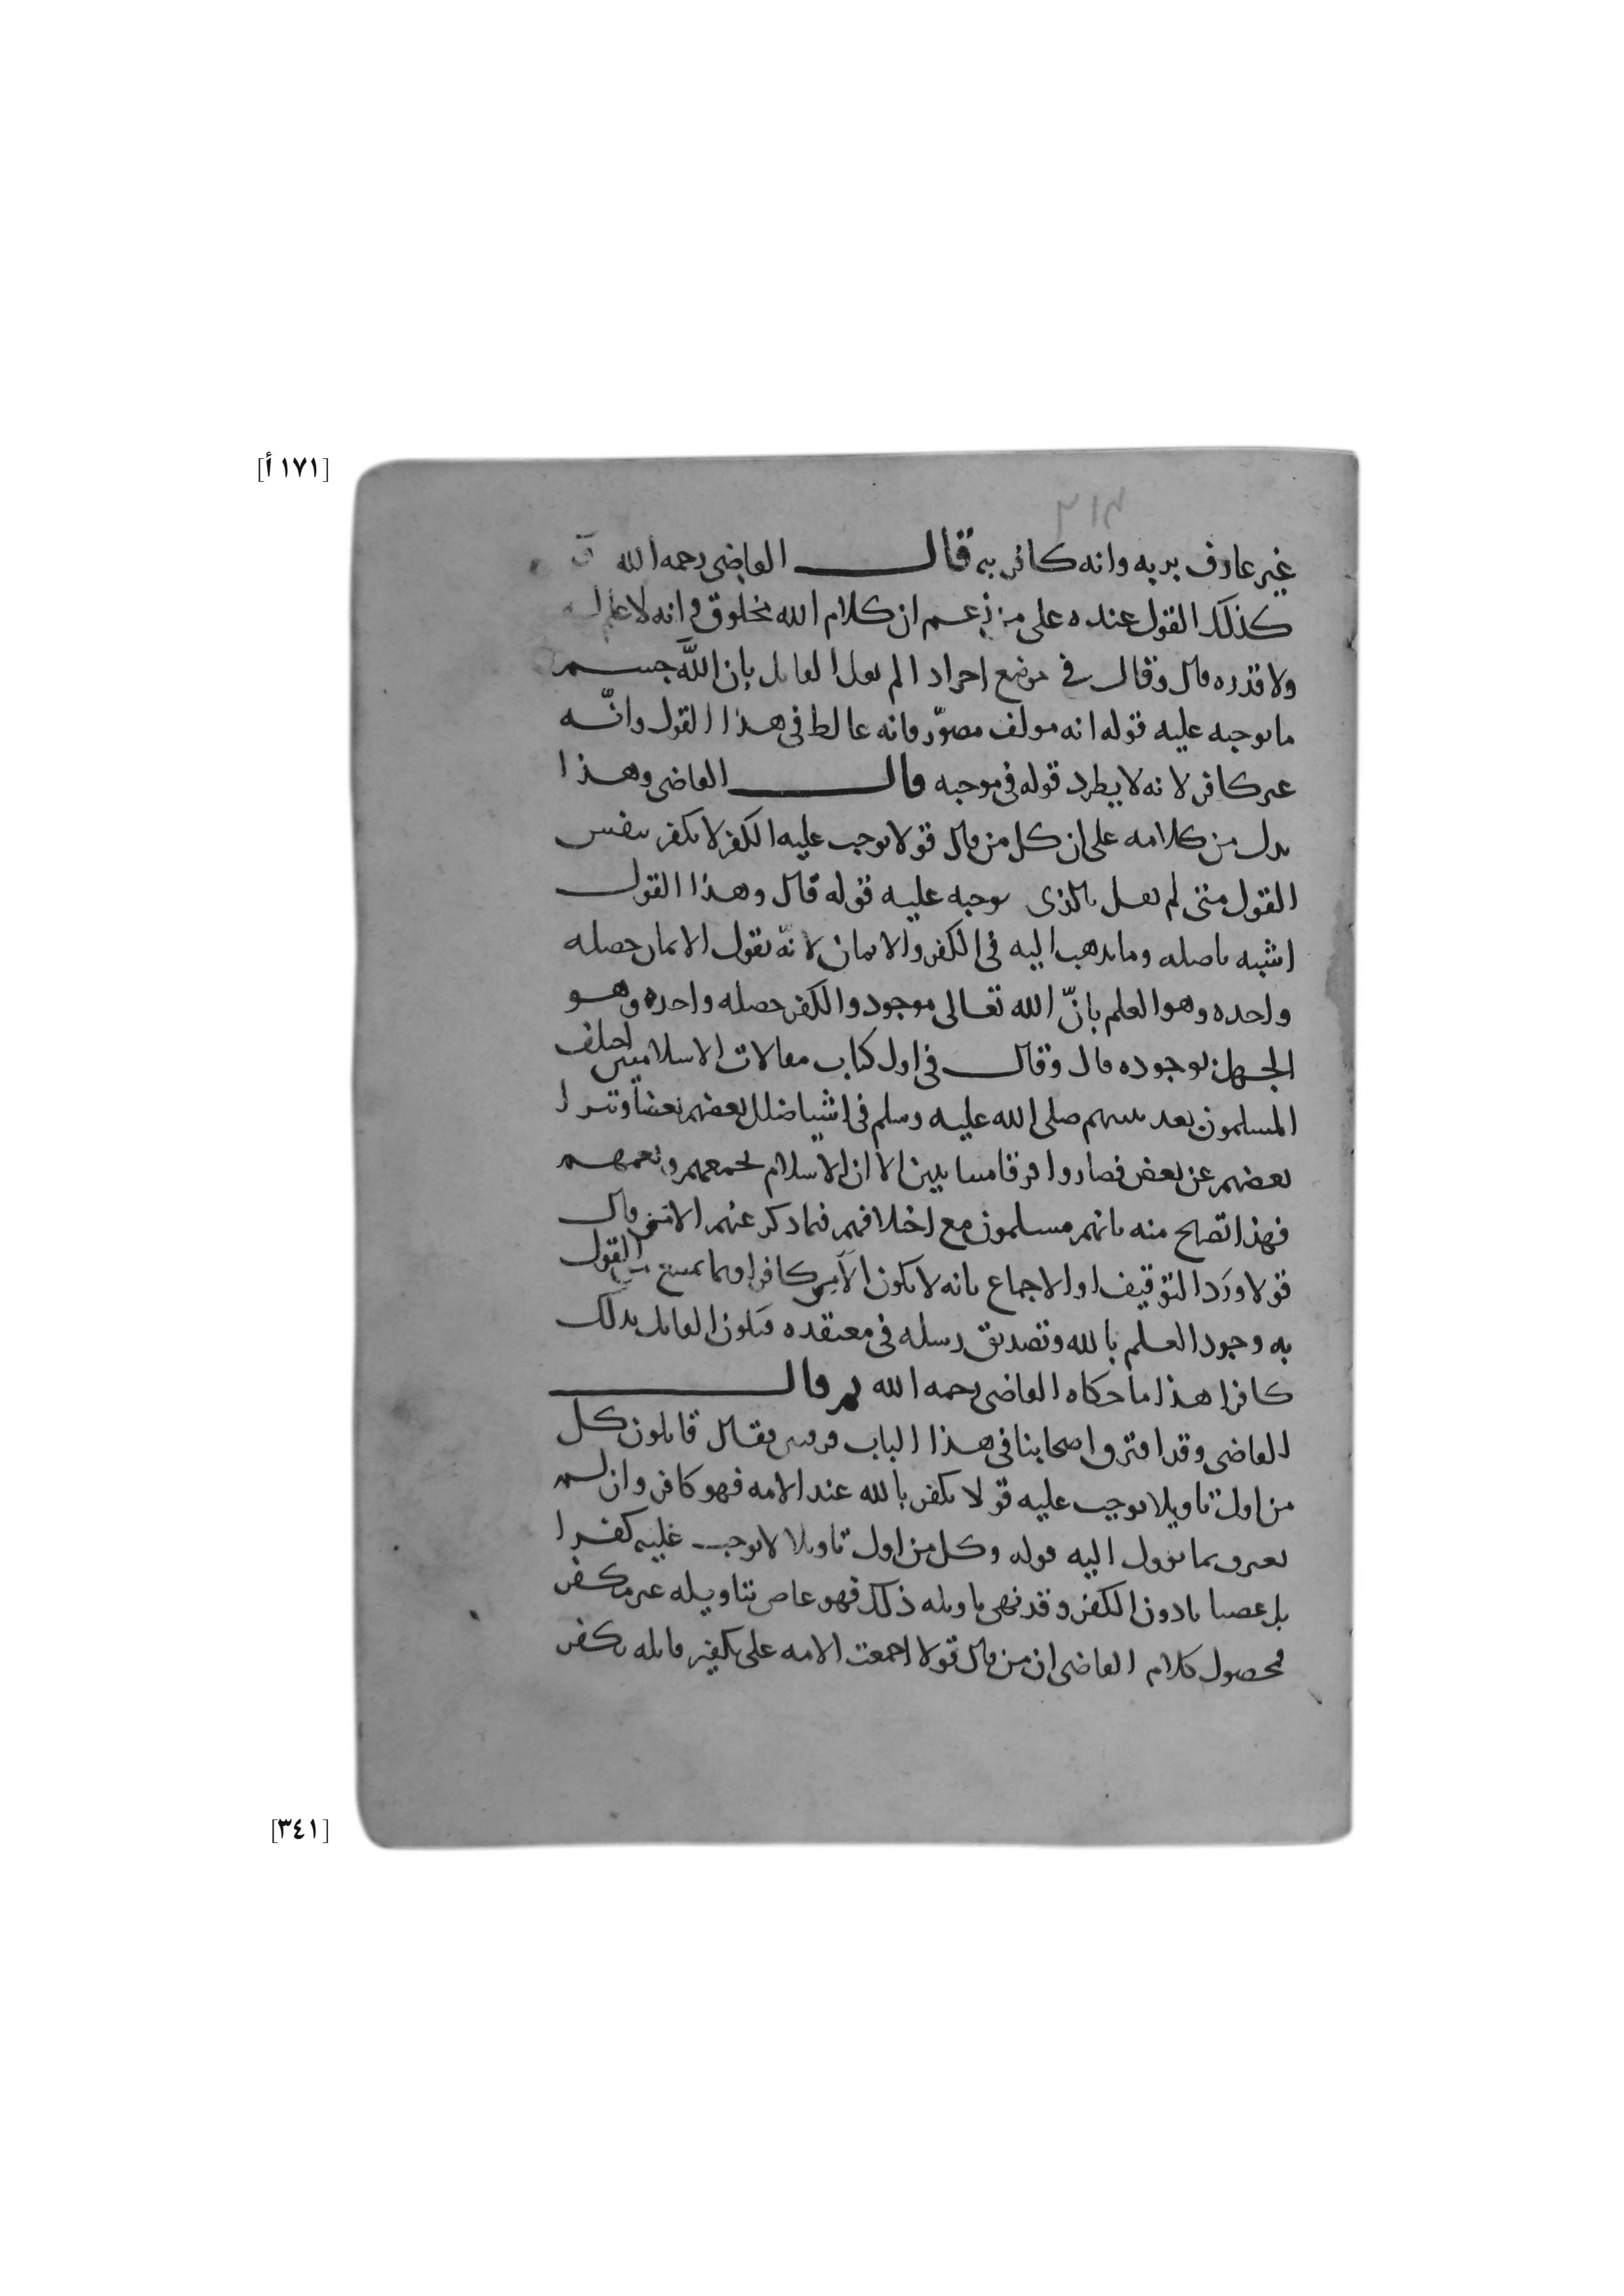 [١٧١ أ]
غير عارف بربه وانه كافر به قال القاضي رحمه الله
كذلك القول عنده على من زعم ان كلام الله مخلوق وانه لا علم له
ولا قدره قال وقال في موضع اخر اذا لم يقل القايل بان الله جسم
ما يوجبه عليه قوله انه مولف مصوّر فانه غالط في هذا القول وانّه
غير كافر لانه لا يطرد قوله في موجبه قال القاضي وهذا
يدل من كلامه على ان كل من قال قولا يوجب عليه الكفر لا يكفر بنفس
القول متى لم يقل بالذي يوجبه عليه قوله قال وهذا القول
اشبه باصله وما يذهب اليه في الكفر والايمان لانه يقول الايمان خصله
واحده وهو العلم بانّ الله تعالى موجود والكفر خصله واحده وهو
الجهل بوجوده قال وقال في اول كتاب مقالات الاسلاميين اختلف
المسلمون بعد نبيهم صلى الله عليه وسلم في اشيا ضلل بعضهم بعضا وتبرا
بعضهم عن بعض فصاروا فرقا متباينين الا ان الاسلام يجمعهم ويعمهم
فهذا تصريح منه بانهم مسلمون مع اختلافهم فيما ذكر عنهم قال
قولا ورَد التوقيف او الاجماع بانه لا يكون الا من كافر القول
به وجود العلم بالله وتصديق رسله في معتقده فيكون القايل بذلك
كافرا هذا ما حكاه القاضي رحمه الله ثم قال
القاضي وقد افترق اصحابنا في هذا الباب فرقتين فقال قايلون كل
من اول تاويلا يوجب عليه قولا يكفر بالله عند الامه فهو كافر وان لم
يعترف بما يوول اليه قوله وكل من اول تاويلا لا يوجب عليه كفرا
بل عصيانا دون الكفر وقد نهي تاويله ذلك فهو عاص بتاويله غير مكفر
فمحصول كلام القاضي ان من قال قولا اجمعت الامه على تكفير قايله يكفر
[٣٤١]